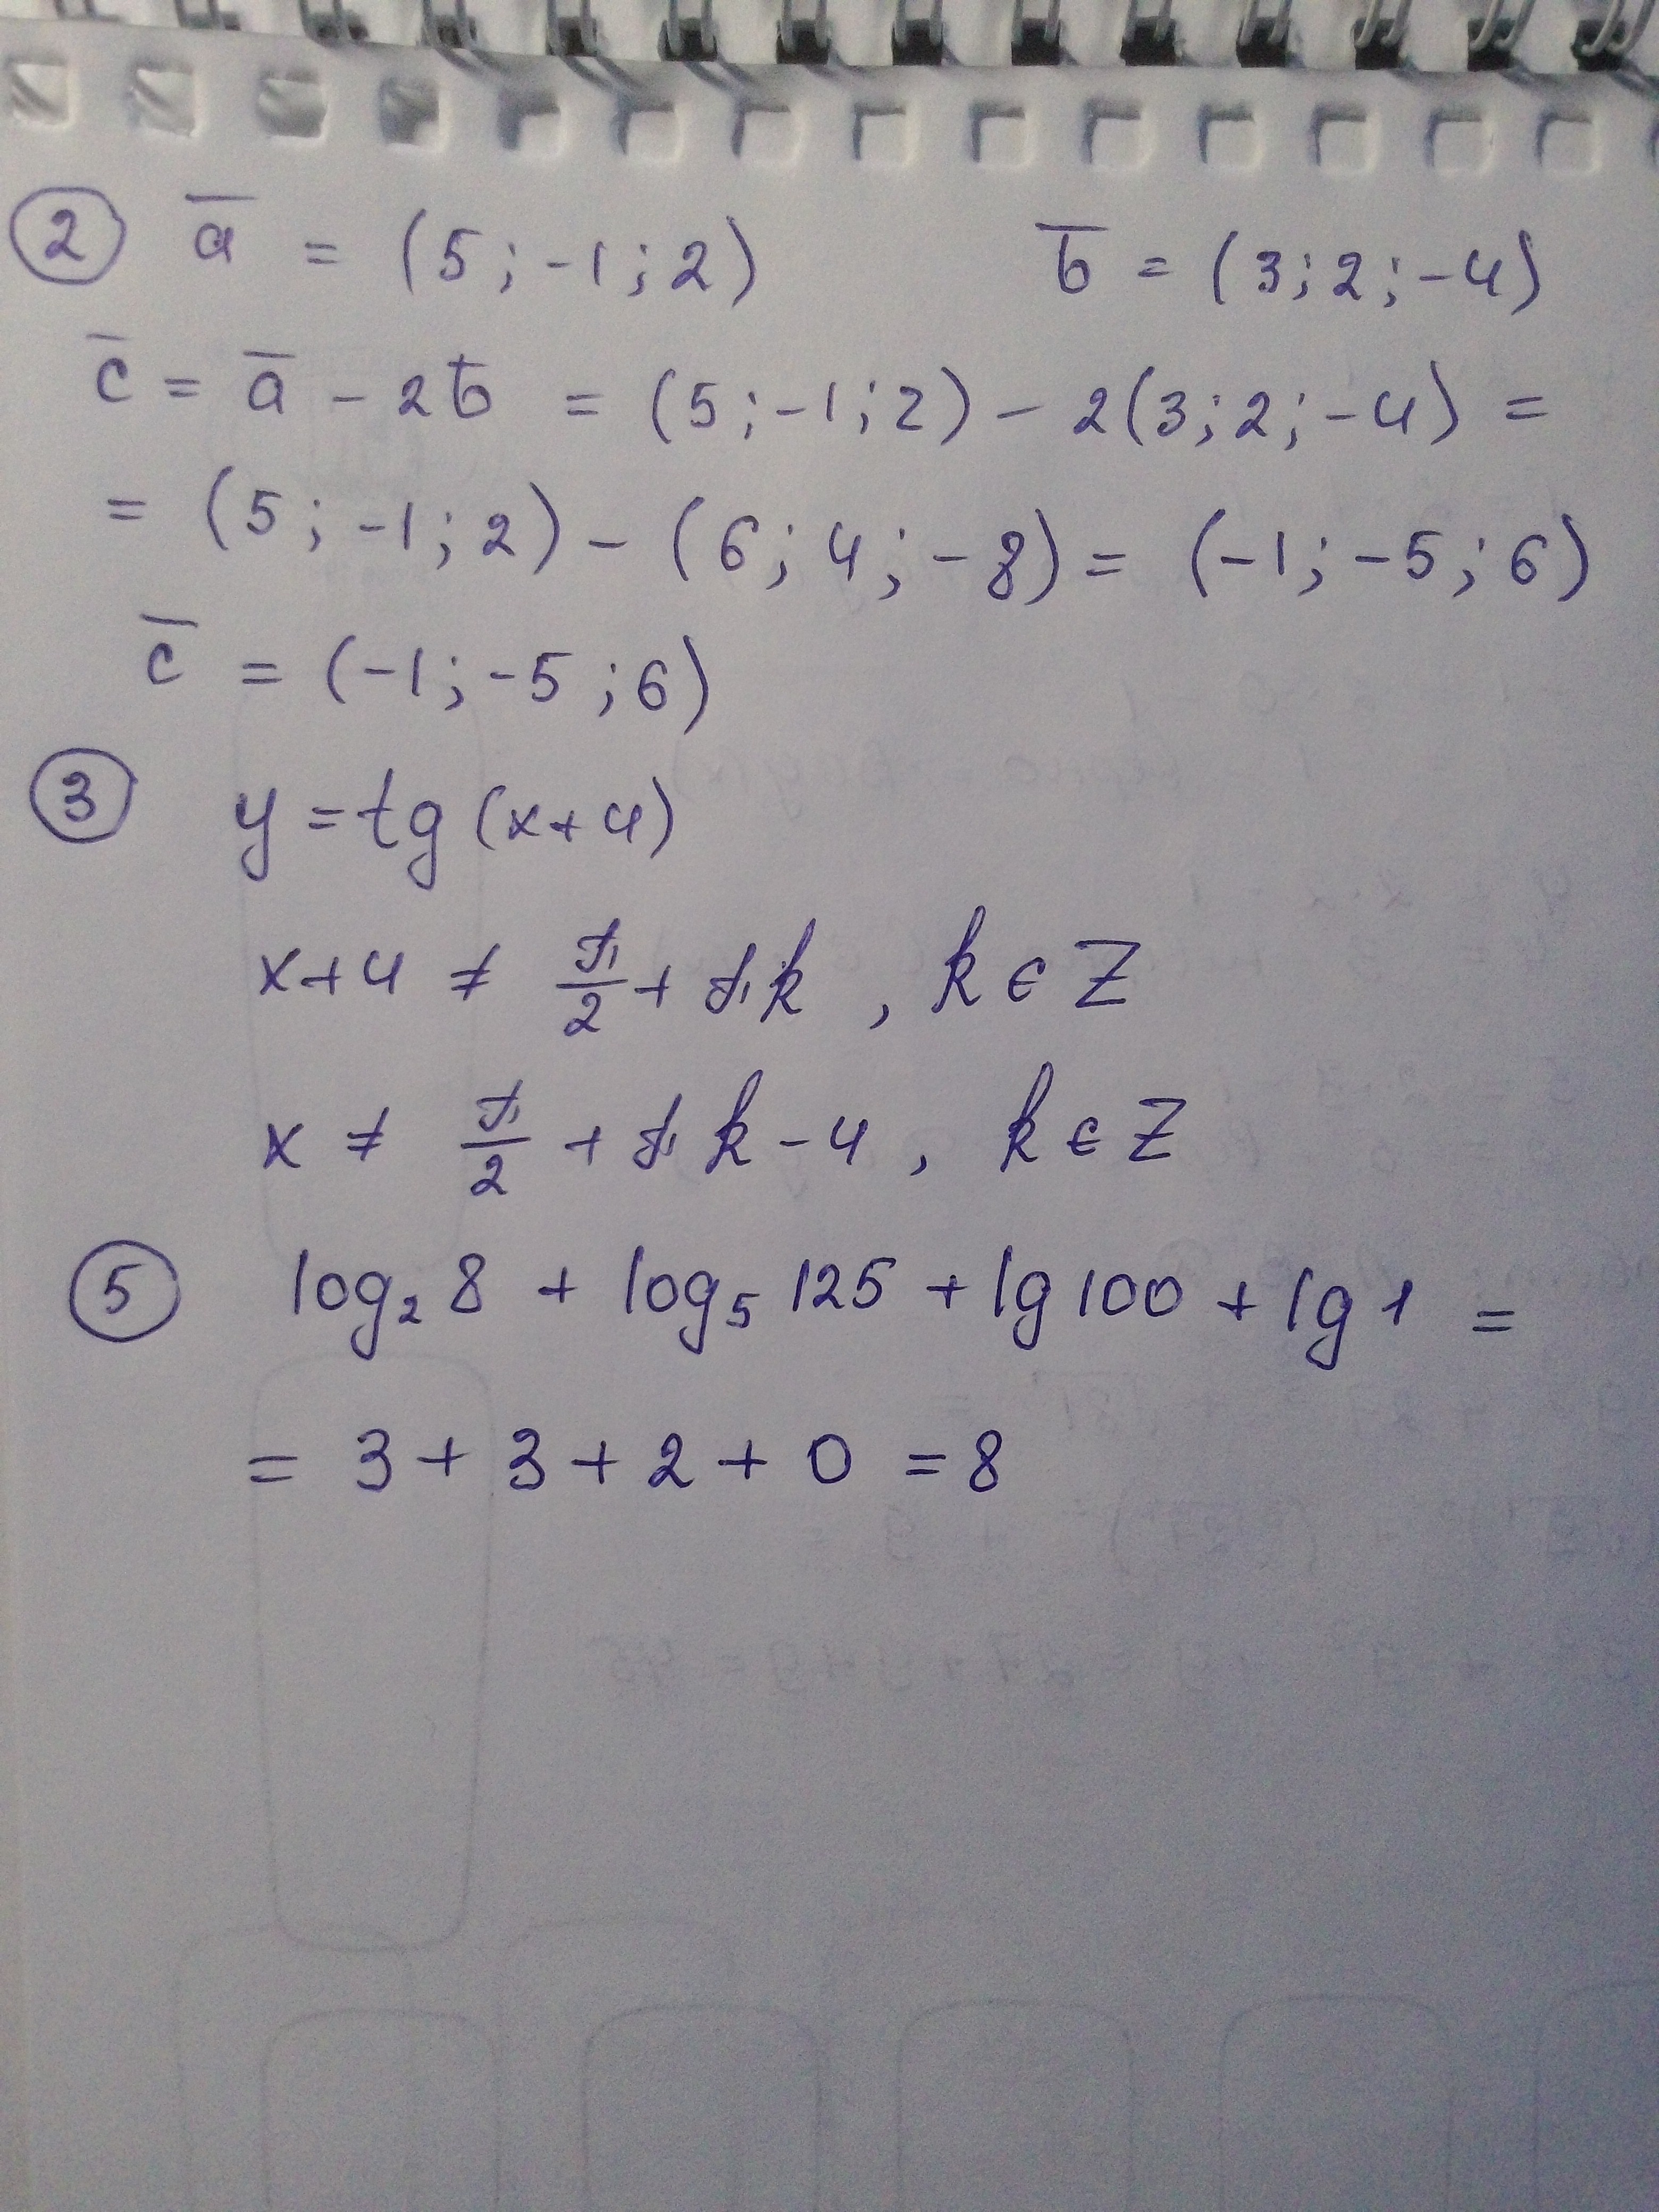 ② a̅ = (5; -1; 2) b̅ = (3; 2; -4)
c̅ = a̅ - 2b̅ = (5; -1; 2) - 2(3; 2; -4) =
= (5; -1; 2) - (6; 4; -8) = (-1; -5; 6)
c̅ = (-1; -5; 6)
③ y = tg (x+4)
x+4 ≠ π/2 + πk, k ∈ Z
x ≠ π/2 + πk - 4, k ∈ Z
⑤ log₂ 8 + log₅ 125 + lg 100 + lg 1 =
= 3 + 3 + 2 + 0 = 8